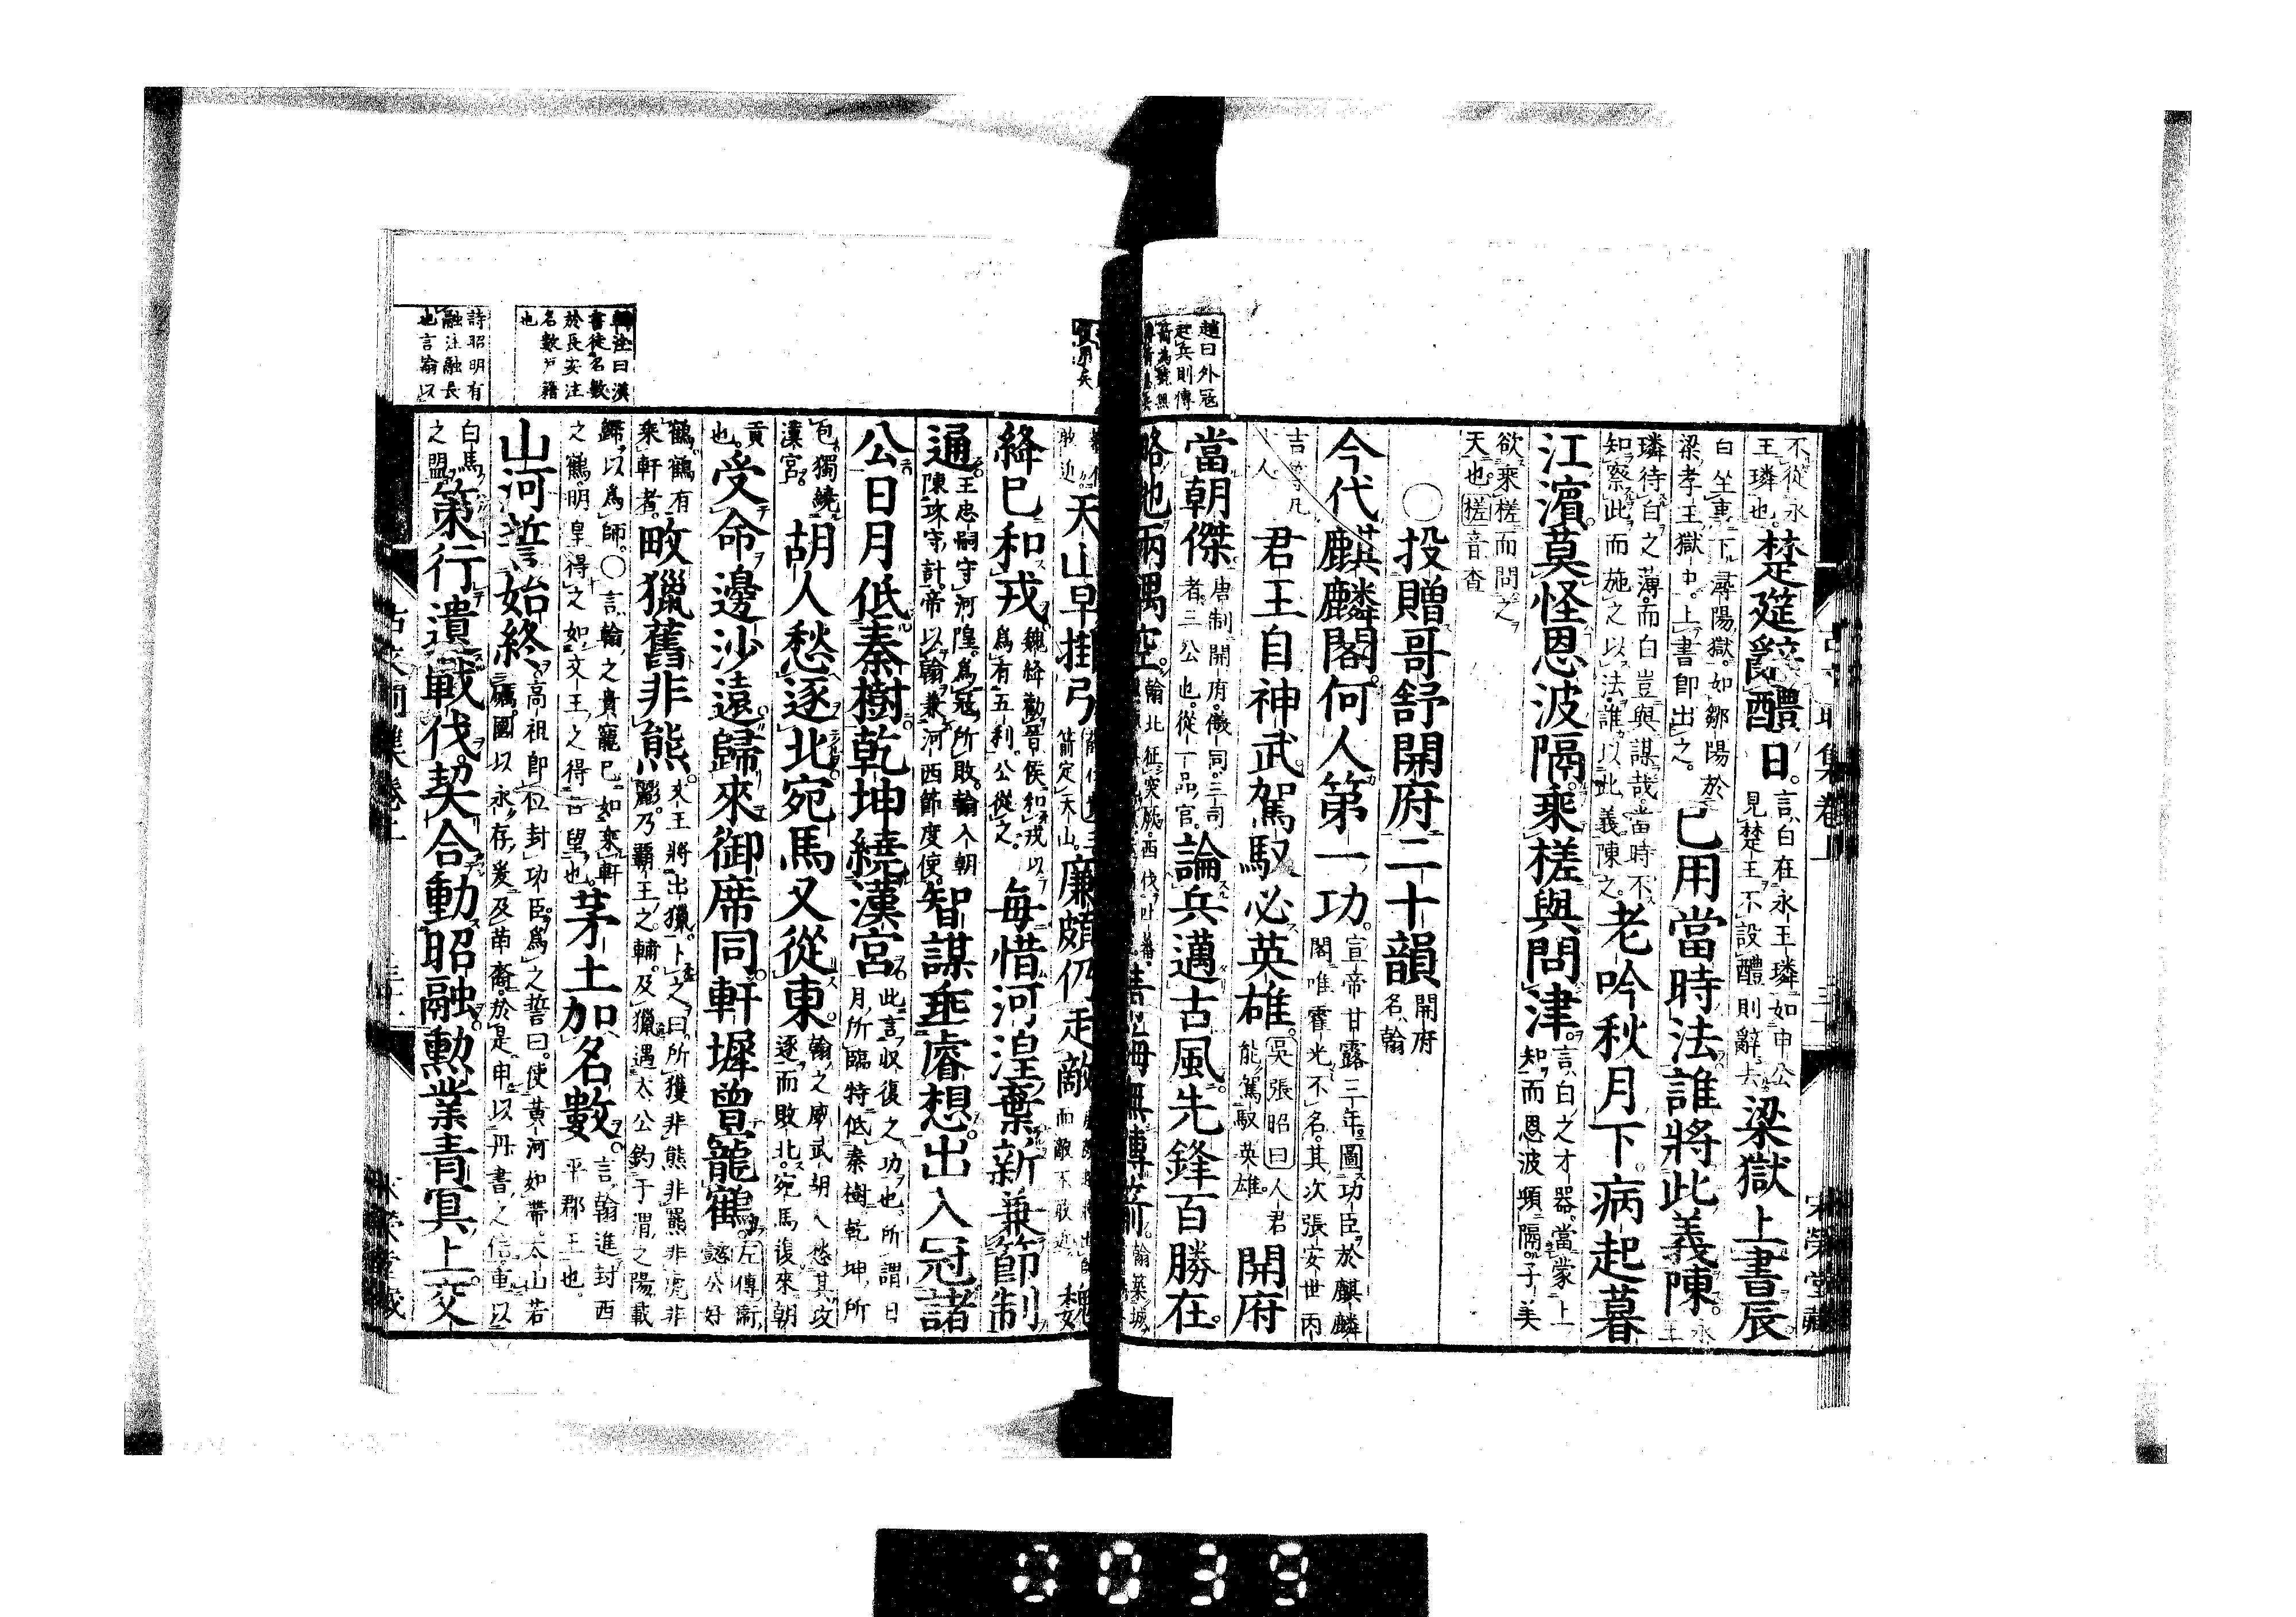 趙曰外冦
起兵則傳
箭爲號無
不從永
王璘也。楚筵辭醴日。言白在永王璘如申公
見楚王不設醴則辭去梁獄上書辰。
白坐事下潯陽獄。如鄒陽於
梁孝王獄中。上書即出之。已用當時法誰將此義陳。永
王
璘待白之薄。而白豈與謀哉。當時不
知察此而施之以法誰以此義陳之。老吟秋月下。病起暮
江濱。莫怪恩波隔。乘槎與問津。言白之才器。當蒙上
知而恩波頓隔。子美
欲乘槎而問之
天也。槎音查
○投贈哥舒開府二十韻開府
名翰
今代麒麟閣。何人第一功。宣帝甘露三年。圖功臣於麒麟
閣唯霍光不名。其次張安世丙
吉等凡
人。君王自神武。駕馭必英雄。吳張昭曰人君
能駕馭英雄。開府
當朝傑。唐制開府儀同三司
者三公也。從一品官。論兵邁古風。先鋒百勝在。
略地兩隅空。翰北征突厥。西伐吐蕃。青海無傳箭。翰築城
敢近天山早掛弓。箭定天山。廉頗仍走敵。而敵不敢近。魏
絳已和戎。魏絳勸晉侯和戎以
爲有五利。公從之。每惜河湟棄。新兼節制
通。王忠嗣守河隍。爲冦所敗。翰入朝
陳攻守計。帝以翰兼河西節度使。智謀垂睿想。出入冠諸
公。日月低秦樹。乾坤繞漢宮。此言收復之功也。所謂日
月所臨特低秦樹乾坤所
包。獨繞
漢宮。胡人愁逐北。宛馬又從東。翰之威武胡人愁其攻
逐而敗北。宛馬復來朝
貢
也。受命邊沙遠。歸來御席同。軒墀曾寵鶴。左傳衛
懿公好
鶴。鶴有
乘軒者。畋獵舊非熊。文王將出獵。卜之曰。所獲非熊非羆非虎非
彲。乃霸王之輔。及獵遇太公釣于渭之陽。載
歸。以爲師。○言翰之貴寵已如乘軒
之鶴。明皇得之如文王之得呂望也。茅土加名數。言翰進封西
平郡王也。
山河誓始終。高祖即位封功臣。爲之誓曰。使黃河如帶。太山若
厲。國以永存。爰及苗裔。於是申以丹書之信。重以
白馬
之盟。策行遺戰伐。契合動昭融。勳業青冥上。交
韓注曰漢
書徒名數
於長安注
名數戶籍
也
詩昭明有
融注融長
也言翰以
宋榮堂藏
0039